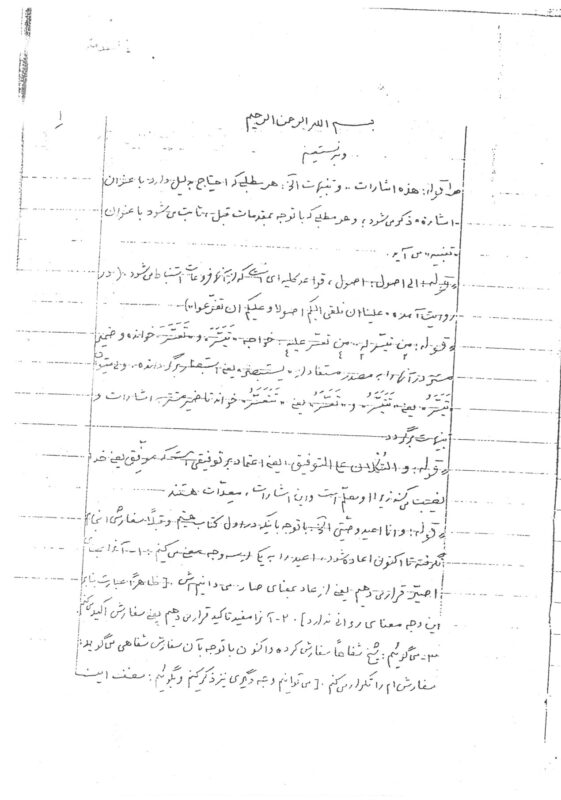 بسم الله الرحمن الرحیم
و به نستعین
۱
قوله: هذه اشارات .. و تنبیهات الخ: هر مطلبی که احتیاج به دلیل دارد با عنوان
«اشارة» ذکر می شود و هر مطلبی که با توجه بمقدمات قبل، ثابت می شود با عنوان
«تنبیه» می آید.
قوله: الی اصول: اصول، قواعد کلیه ای است که از آنها فروعات استنباط می شود. (در
روایت آمده «علینا ان نلقی الیکم اصولا و علیکم ان تفرّعوا»)
قوله: من تیسّر له، من تعسّر علیه: خواجه تَیَسَّرَ و تَعَسَّرَ خوانده و ضمیر
مستتر در آنها را به مصدر مستفاد از یستبصر یعنی استبصار برگردانده. ولی میتوان
تَیَسَّرُ یعنی تَتَیَسَّرُ و تَعَسَّرُ یعنی تَتَعَسَّرُ خواند تا ضمیر مستتر به اشارات و
تنبیهات برگردد.
قوله: و التُکلان علی التوفیق: یعنی اعتماد بر توفیق است که موفّق یعنی خدا
نصیب می کند زیرا او معلّم است و این اشارات، معدّات هستند.
قوله: و انا اعید وصیّتی الخ: با توجه باینکه در اول کتاب هستیم و قبلاً سفارشی انجام
نگرفته تا اکنون اعاده شود، اعید را به یکی از سه وجه معنی می کنیم: ۱- آنرا
قرار می دهم یعنی از عاد بمعنای صار می دانیمش. [ظاهراً عبارت بنابر
این وجه معنای روانی ندارد] ۲- آنرا مفید تاکید قرار می دهم یعنی سفارش اکید می کنم
۳- می گوئیم: شیخ شفاهاً سفارش کرده و اکنون با توجه بآن سفارش شفاهی می گوید:
سفارش ام را تکرار می کنم. [می توانیم وجه دیگری نیز ذکر کنیم و بگوئیم: مصنف این